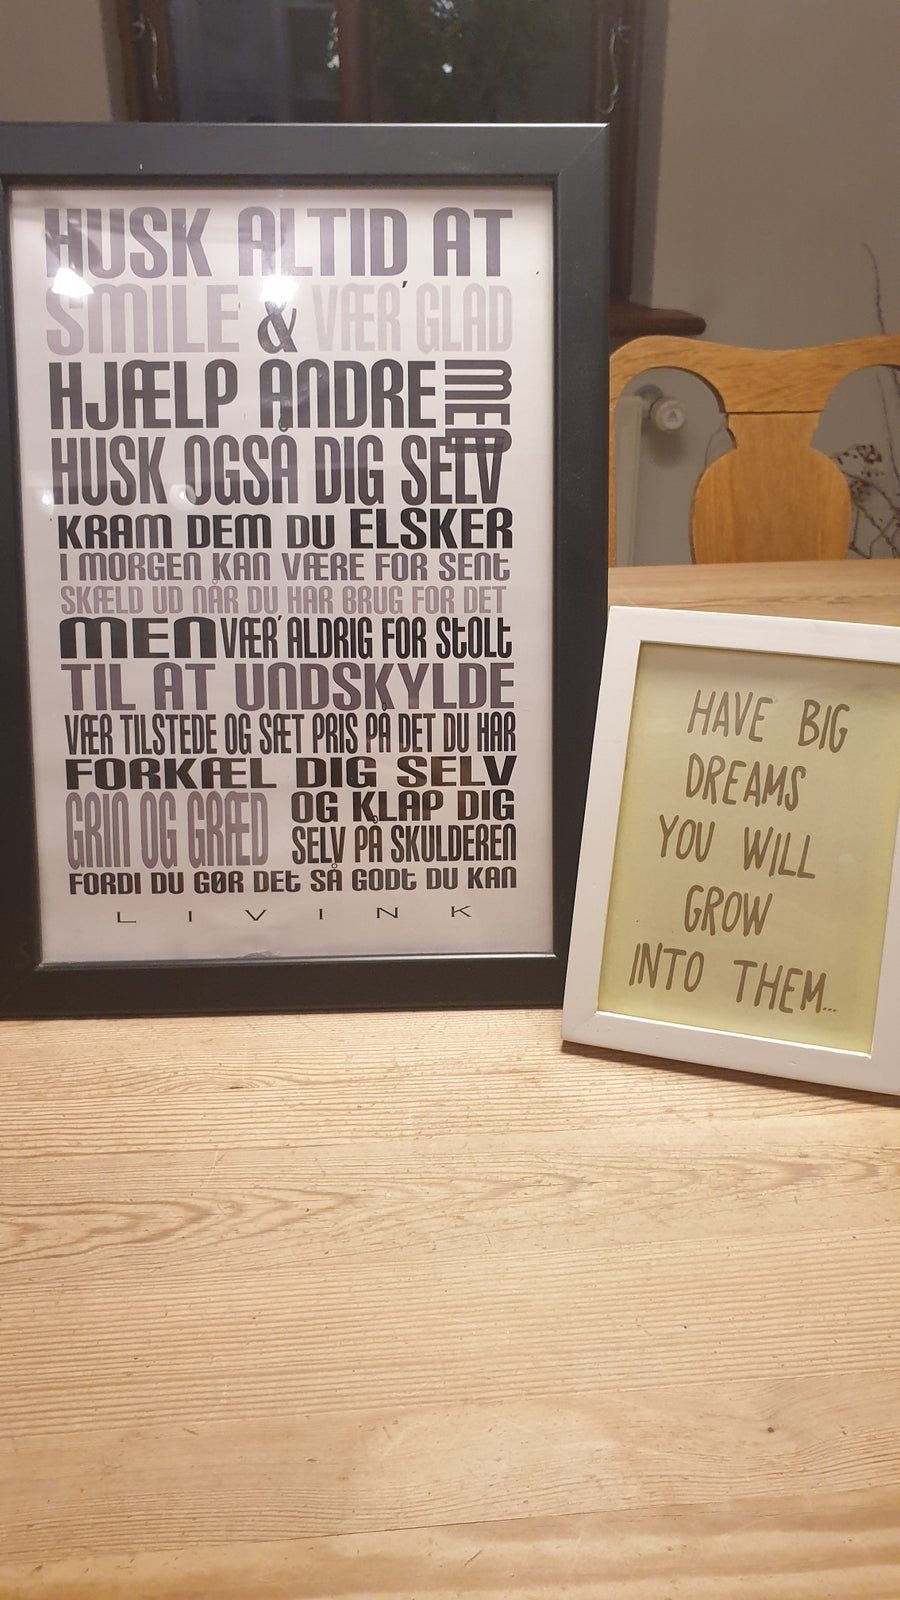 HUSK ALTID AT
SMILE & VÆR' GLAD
HJÆLP ANDRE MEN
HUSK OGSÅ DIG SELV
KRAM DEM DU ELSKER
I MORGEN KAN VÆRE FOR SENT
SKÆLD UD NÅR DU HAR BRUG FOR DET
MEN VÆR' ALDRIG FOR STOLT
TIL AT UNDSKYLDE
VÆR TILSTEDE OG SÆT PRIS PÅ DET DU HAR
FORKÆL DIG SELV
GRIN OG GRÆD
OG KLAP DIG
SELV PÅ SKULDEREN
FORDI DU GØR DET SÅ GODT DU KAN
LIVINK
HAVE BIG
DREAMS
YOU WILL
GROW
INTO THEM...